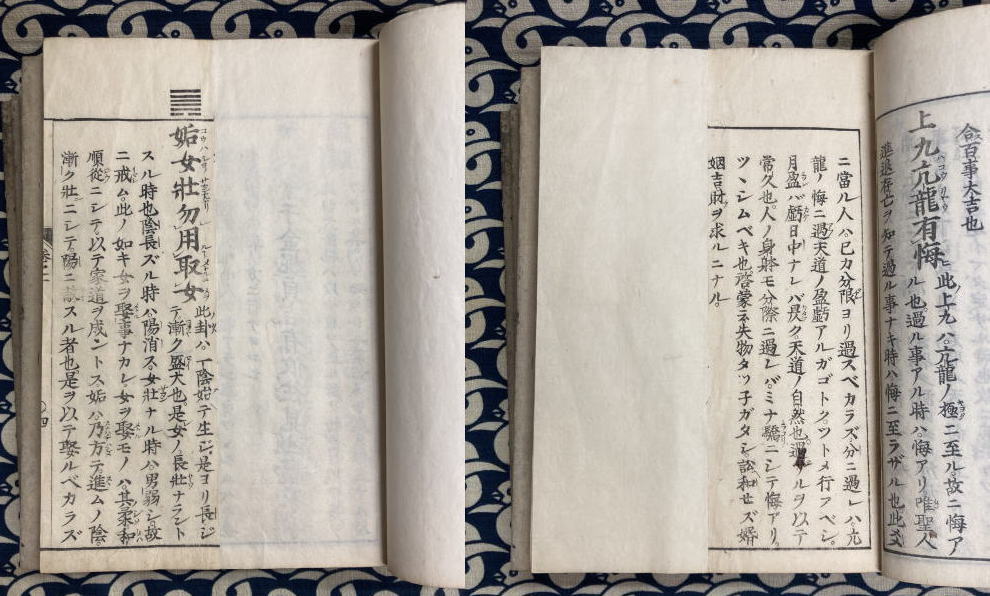 百事大吉也
上九亢龍有悔 此上九ハ。亢龍ノ極ニ至ル。故ニ悔ア
ル也。過ル事アル時ハ。悔アリ唯聖人
進退存亡ヲ知テ過ル事ナキ時ハ悔ニ至ラザル也此爻
ニ當ル人ハ已カ分限ヨリ過スベカラズ。分ニ過レハ亢
龍ノ悔ニ過天道ノ盈虧アルガゴトク。ツトメ行フベシ。
月盈バ虧日中ナレバ昃ク天道ノ自然也。過ルヲ以テ
常久也。人ノ身躰モ分際ニ過レバミナ驕ニシテ悔アリ。
ツヽシムベキ也。啓蒙ニ失物タツ子ガタシ。訟和セズ婚
姻吉財ヲ求ルニナル。
姤女壮勿用取女 此卦ハ一陰始テ生ジ。是ヨリ長ジ
テ漸ク盛大也是女ノ長壮ナラント
スル時也陰長ズル時ハ陽消ス。女壮ナル時ハ男弱シ。故
ニ戒ム。此ノ如キ女ヲ娶事ナカレ女ヲ娶モノハ。其柔和
順従ニシテ。以テ家道ヲ成ントス姤ハ乃方テ進ムノ陰。
漸ク壮ニシテ。陽ニ敵スル者也。是ヲ以テ娶ルベカラズ
四